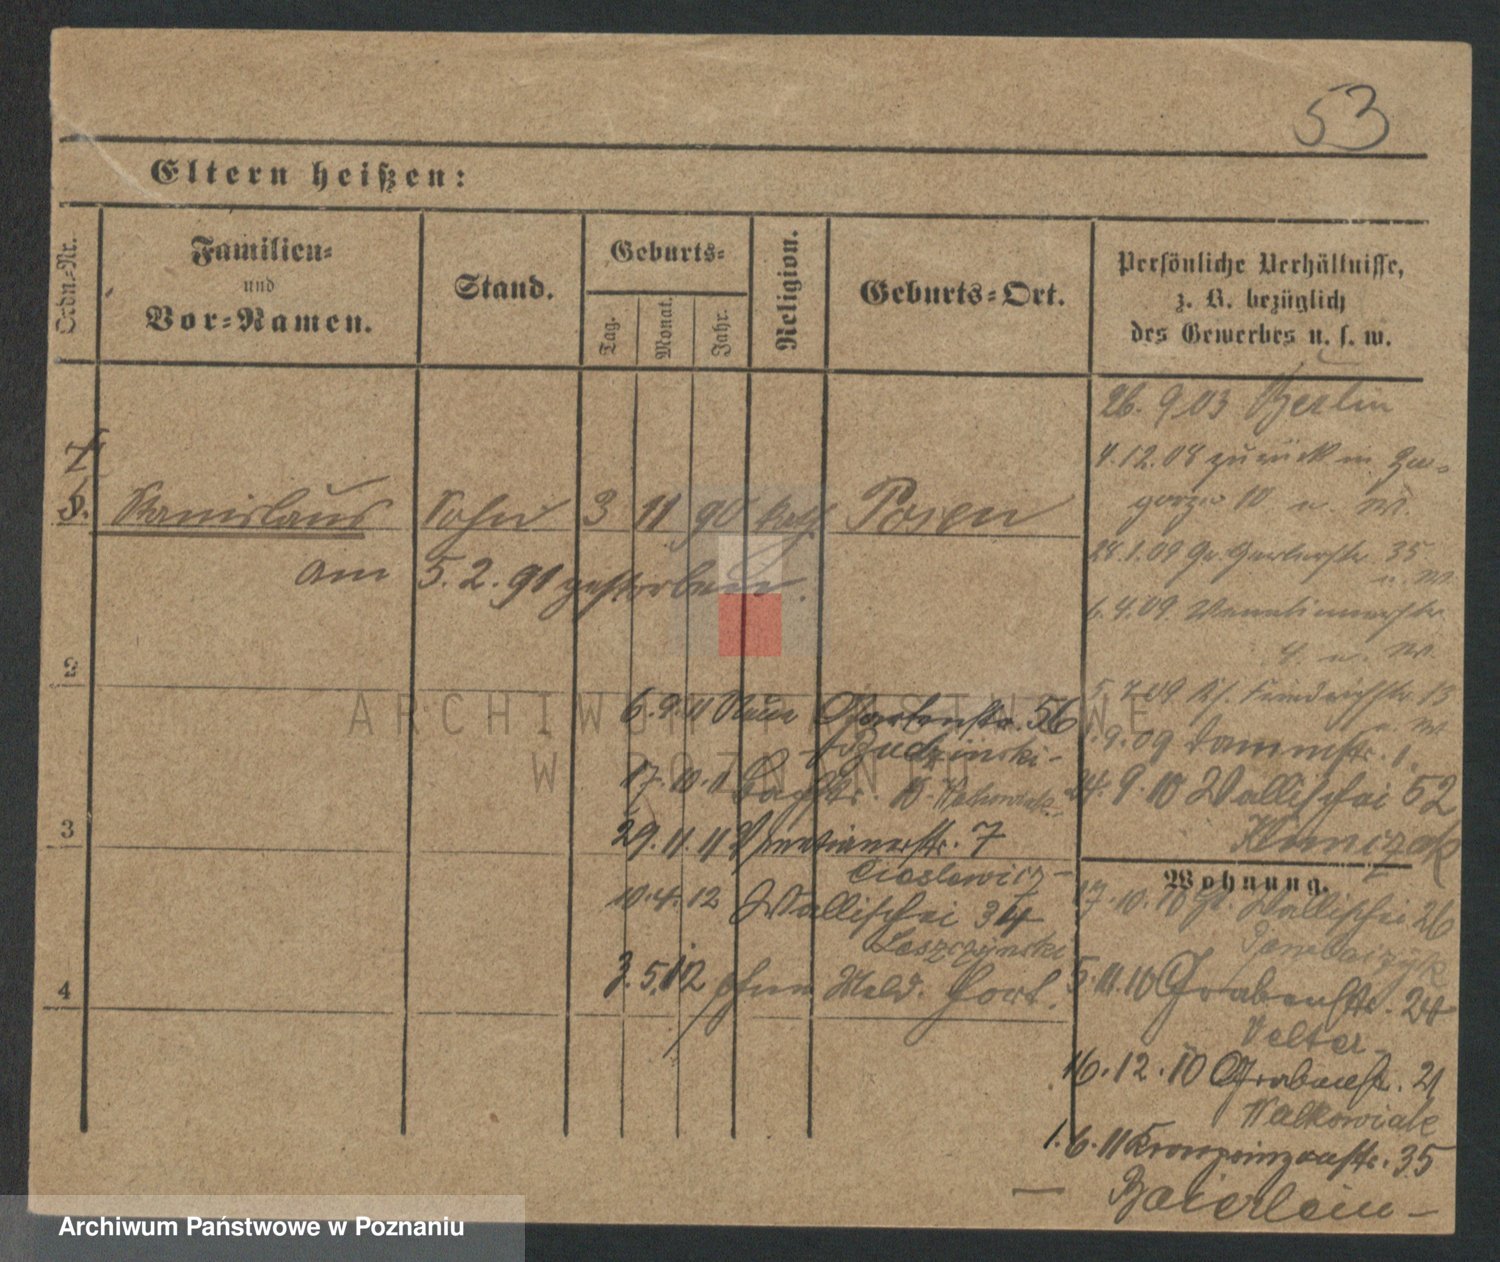 53
Eltern heißen:
Ordn.-Nr.
Familien-
und
Vor-Namen.
Stand.
Geburts-
Tag.
Monat.
Jahr.
Religion.
Geburts-Ort.
Persönliche Verhältnisse,
z. B. bezüglich
des Gewerbes u. s. w.
26. 9 03 Berlin
4.12.08 zurück in
Stanislaus Sohn 3 11 90 kath Posen
am 5.2.91 gestorben.
28.1.09 Gr. Gerberstr. 35
u. W.
6.4.09 Venetianerstr
4 u. W.
5.7.09 Friedrichstr 13
u. W
9.09 Dammstr. 1.
24. 9. 10 Wallischei 52
2
6.9.11 Neue Gartenstr. 56
Budzinski-
17.10.11 Walkowiak
3
29.11.11 Venetianerstr. 7
Cieslewicz-
10.4.12 Wallischei 34
Leszczynski
4
3.5.12 ohne Meld. fort.
Wohnung.
17.10.10 Wallischei 26
5.11.10 Grabenstr. 24
Velter-
16.12.10 Grabenstr. 21
Walkowiak
1.6.11 Kronprinzenstr. 35
— Baierlein —
ARCHIWUM PAŃSTWOWE
W POZNANIU
Archiwum Państwowe w Poznaniu